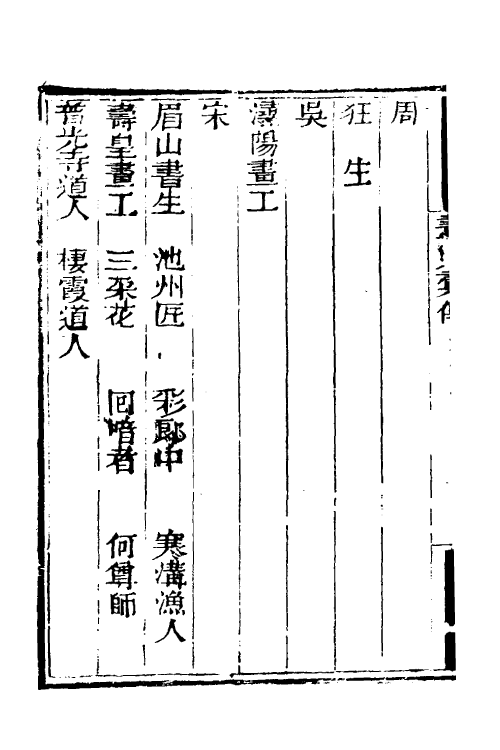 周
狂生
吳
潯陽畫工
宋
眉山書生 池州匠 彩郎中 寒溝漁人
壽皇畫工 三朶花 回喑者 何曾師
普光寺道人 棲霞道人